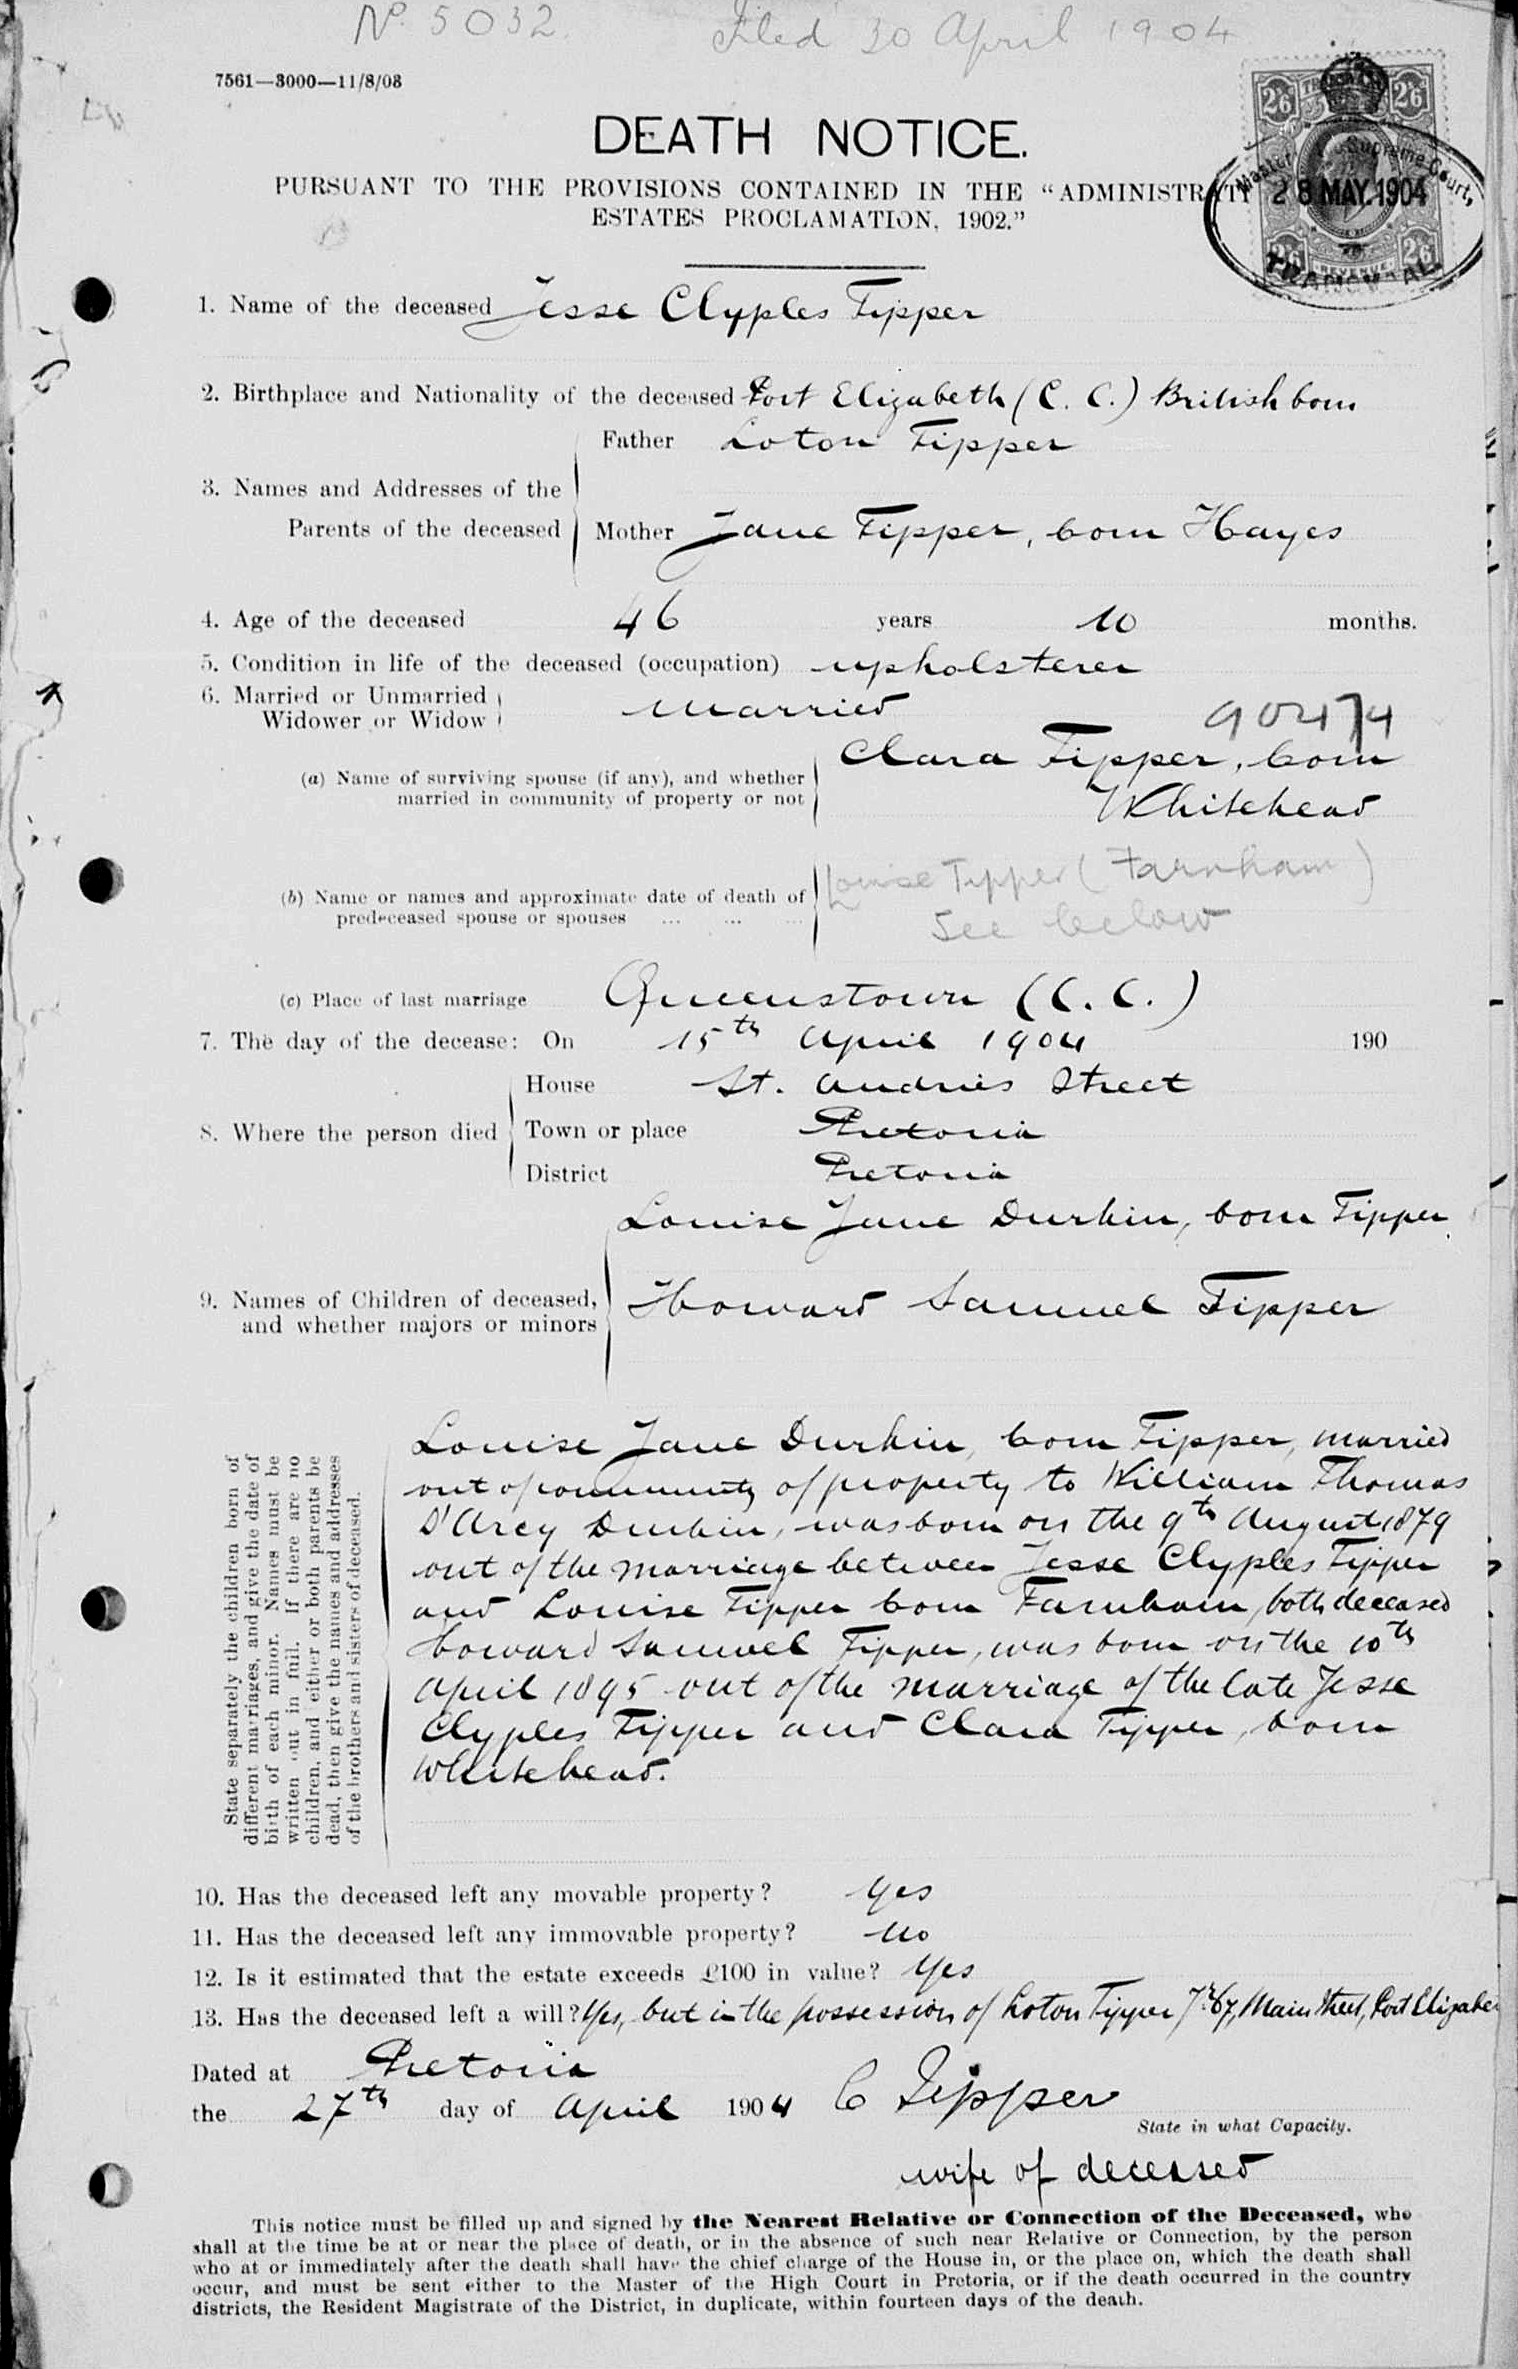 No. 5032. Filed 30 April 1904
7561—3000—11/8/03
DEATH NOTICE.
PURSUANT TO THE PROVISIONS CONTAINED IN THE “ADMINISTRATI
ESTATES PROCLAMATION, 1902.”
2/6 2/6
Master Supreme Court,
28 MAY. 1904
2/6 REVENUE 2/6
TRANSVAAL
1. Name of the deceased Jesse Clyples Tipper
2. Birthplace and Nationality of the deceased Port Elizabeth (C. C.) British born
Father Loton Tipper
3. Names and Addresses of the
Parents of the deceased Mother Jane Tipper, born Hayes
4. Age of the deceased 46 years 10 months.
5. Condition in life of the deceased (occupation) upholsterer
6. Married or Unmarried
Widower or Widow married
90474
(a) Name of surviving spouse (if any), and whether
married in community of property or not
Clara Tipper, born
Whitehead
(b) Name or names and approximate date of death of
predeceased spouse or spouses ... ... ...
Louise Tipper (Farnham)
See below
(c) Place of last marriage Queenstown (C. C.)
7. The day of the decease: On 15th April 1904 190
House St. Andries Street
8. Where the person died Town or place Pretoria
District Pretoria
Louise Jane Durkin, born Tipper
9. Names of Children of deceased,
and whether majors or minors
Howard Samuel Tipper
State separately the children born of
different marriages, and give the date of
birth of each minor. Names must be
written out in full. If there are no
children, and either or both parents be
dead, then give the names and addresses
of the brothers and sisters of deceased.
Louise Jane Durkin, born Tipper, married
out of community of property to William Thomas
D'Arcy Durkin, was born on the 9th August 1879
out of the marriage between Jesse Clyples Tipper
and Louise Tipper born Farnham, both deceased
Howard Samuel Tipper, was born on the 10th
April 1895 out of the marriage of the late Jesse
Clyples Tipper and Clara Tipper, born
Whitehead.
10. Has the deceased left any movable property? Yes
11. Has the deceased left any immovable property? No
12. Is it estimated that the estate exceeds £100 in value? Yes
13. Has the deceased left a will? Yes, but in the possession of Loton Tipper Main Street, Port Elizabe
Dated at Pretoria
the 27th day of April 1904 C Tipper
State in what Capacity.
wife of deceased
This notice must be filled up and signed by the Nearest Relative or Connection of the Deceased, who
shall at the time be at or near the place of death, or in the absence of such near Relative or Connection, by the person
who at or immediately after the death shall have the chief charge of the House in, or the place on, which the death shall
occur, and must be sent either to the Master of the High Court in Pretoria, or if the death occurred in the country
districts, the Resident Magistrate of the District, in duplicate, within fourteen days of the death.